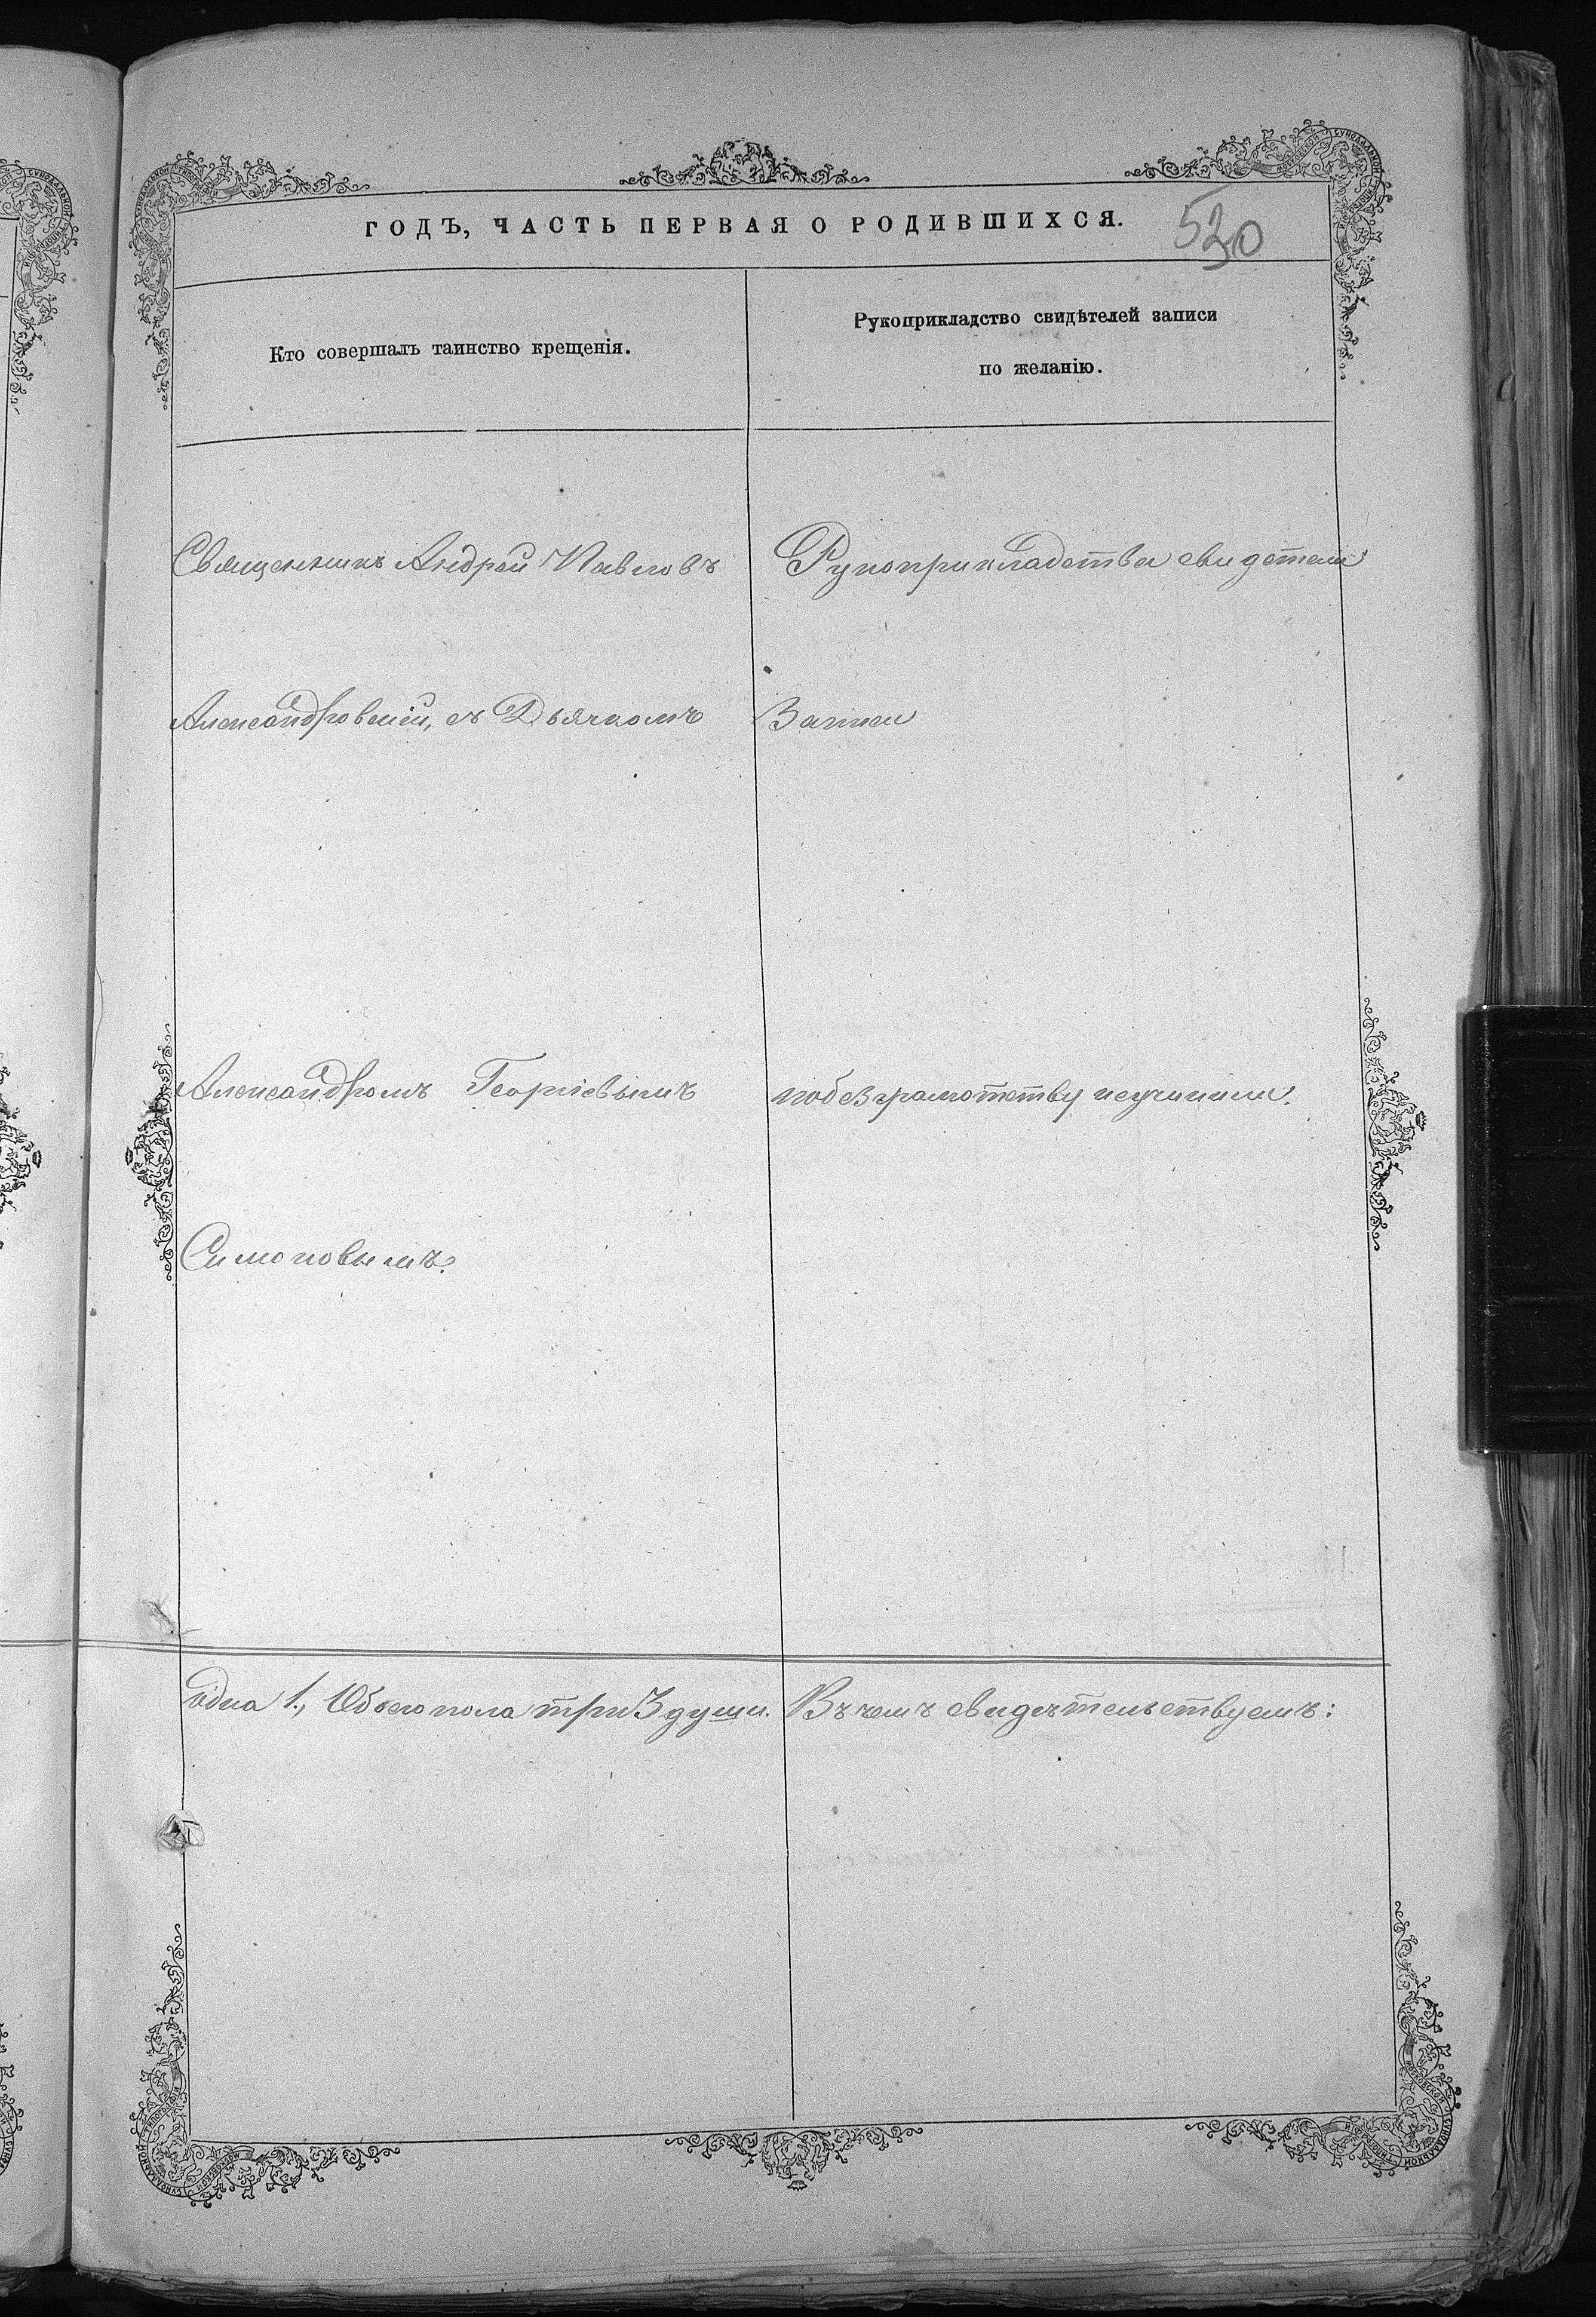 ГОДЪ, ЧАСТЬ ПЕРВАЯ О РОДИВШИХСЯ.
530
Кто совершалъ таинство крещенія.
Рукоприкладство свидѣтелей записи
по желанію.
Священникъ Андрей Павловъ
Александровскій, съ Дьячкомъ
Александромъ Георгіевымъ
Симоновымъ.
Рукоприкладства свидетели
Записи
побезграмотству неучинили.
одна 1., Обоего пола три 3 души.
Въ чемъ свидѣтельствуемъ: